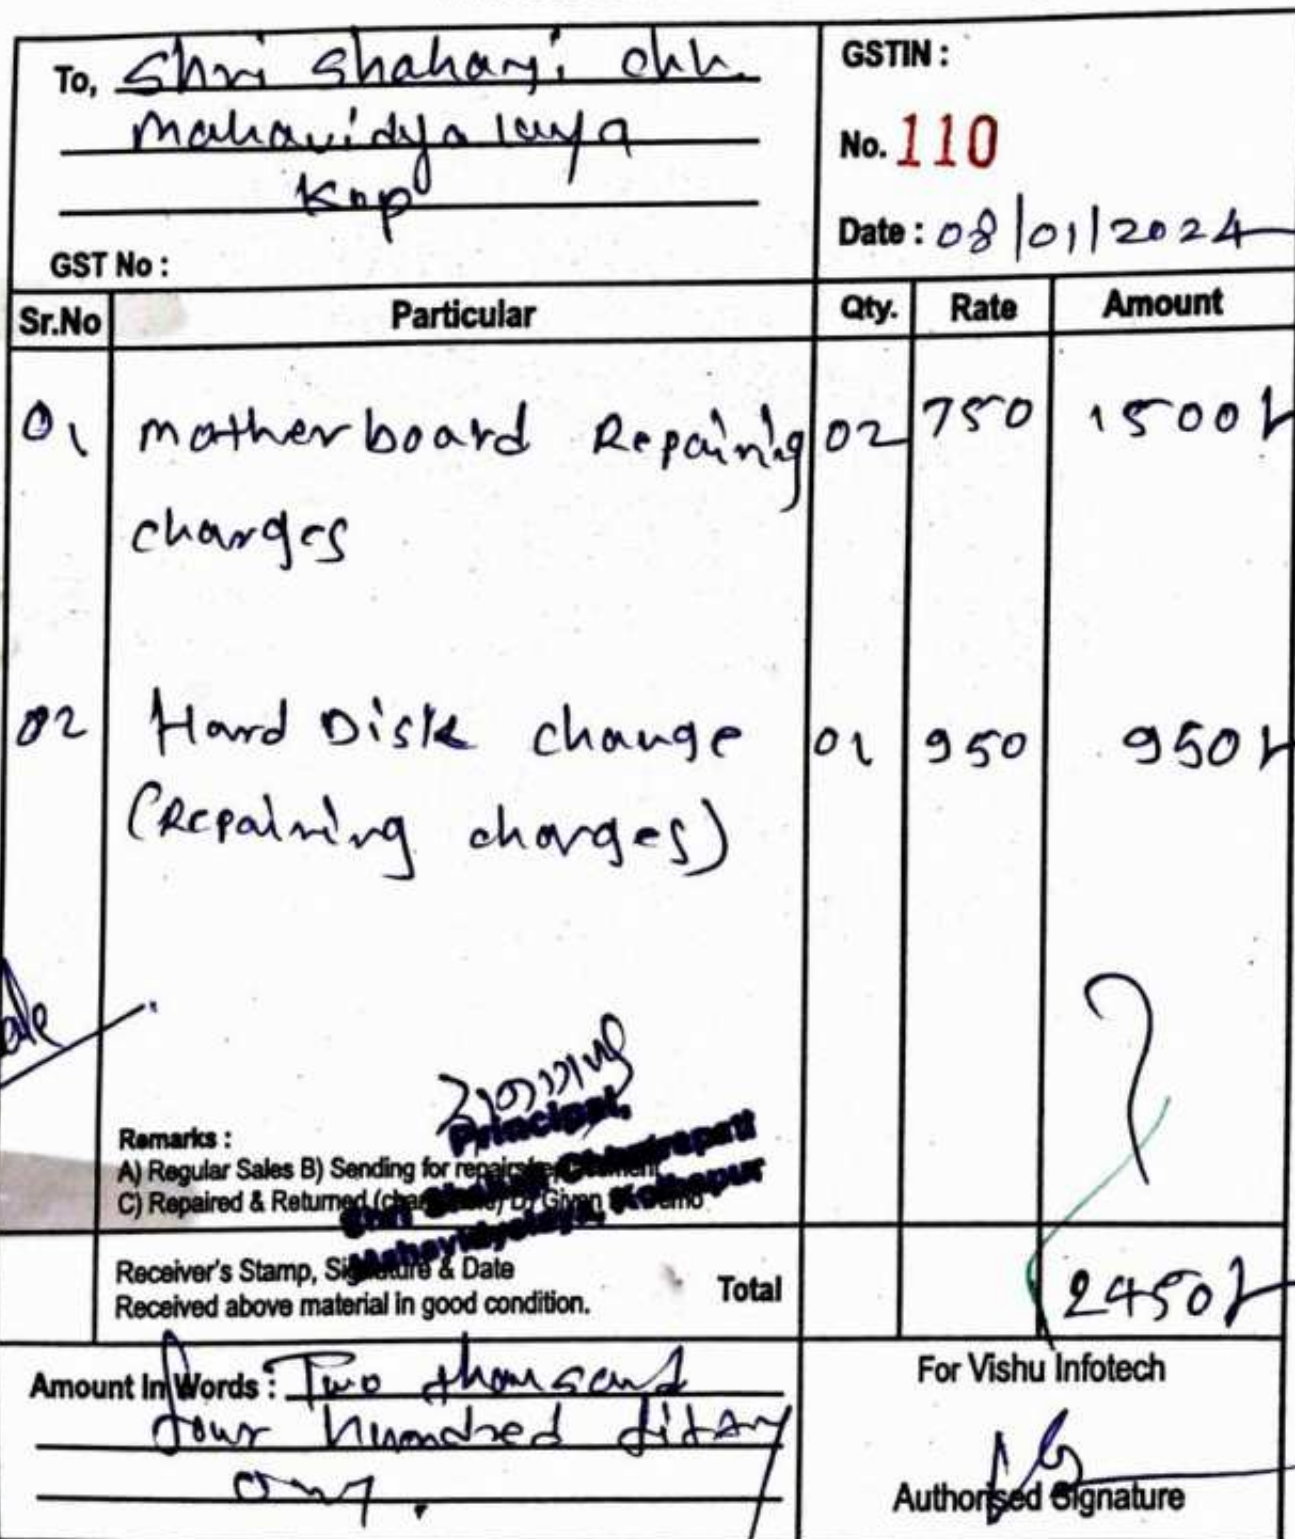 To, Shri Shahaji chh.
Mahavidyalaya
Kop
GST No :
GSTIN :
No. 110
Date : 08/01/2024
Sr.No Particular Qty. Rate Amount
01 motherboard Repairing 02 750 1500/-
charges
02 Hard Disk change 01 950 950/-
(Repairing charges)
Principal,
Remarks :
A) Regular Sales B) Sending for
C) Repaired & Returned D) Given
Shri Shahaji Chhatrapati
Mahavidyalaya, Kolhapur
Receiver's Stamp, Signature & Date
Received above material in good condition.
Total 2450/-
Amount In Words : Two thousand
four hundred fifty
only.
For Vishu Infotech
Authorised Signature